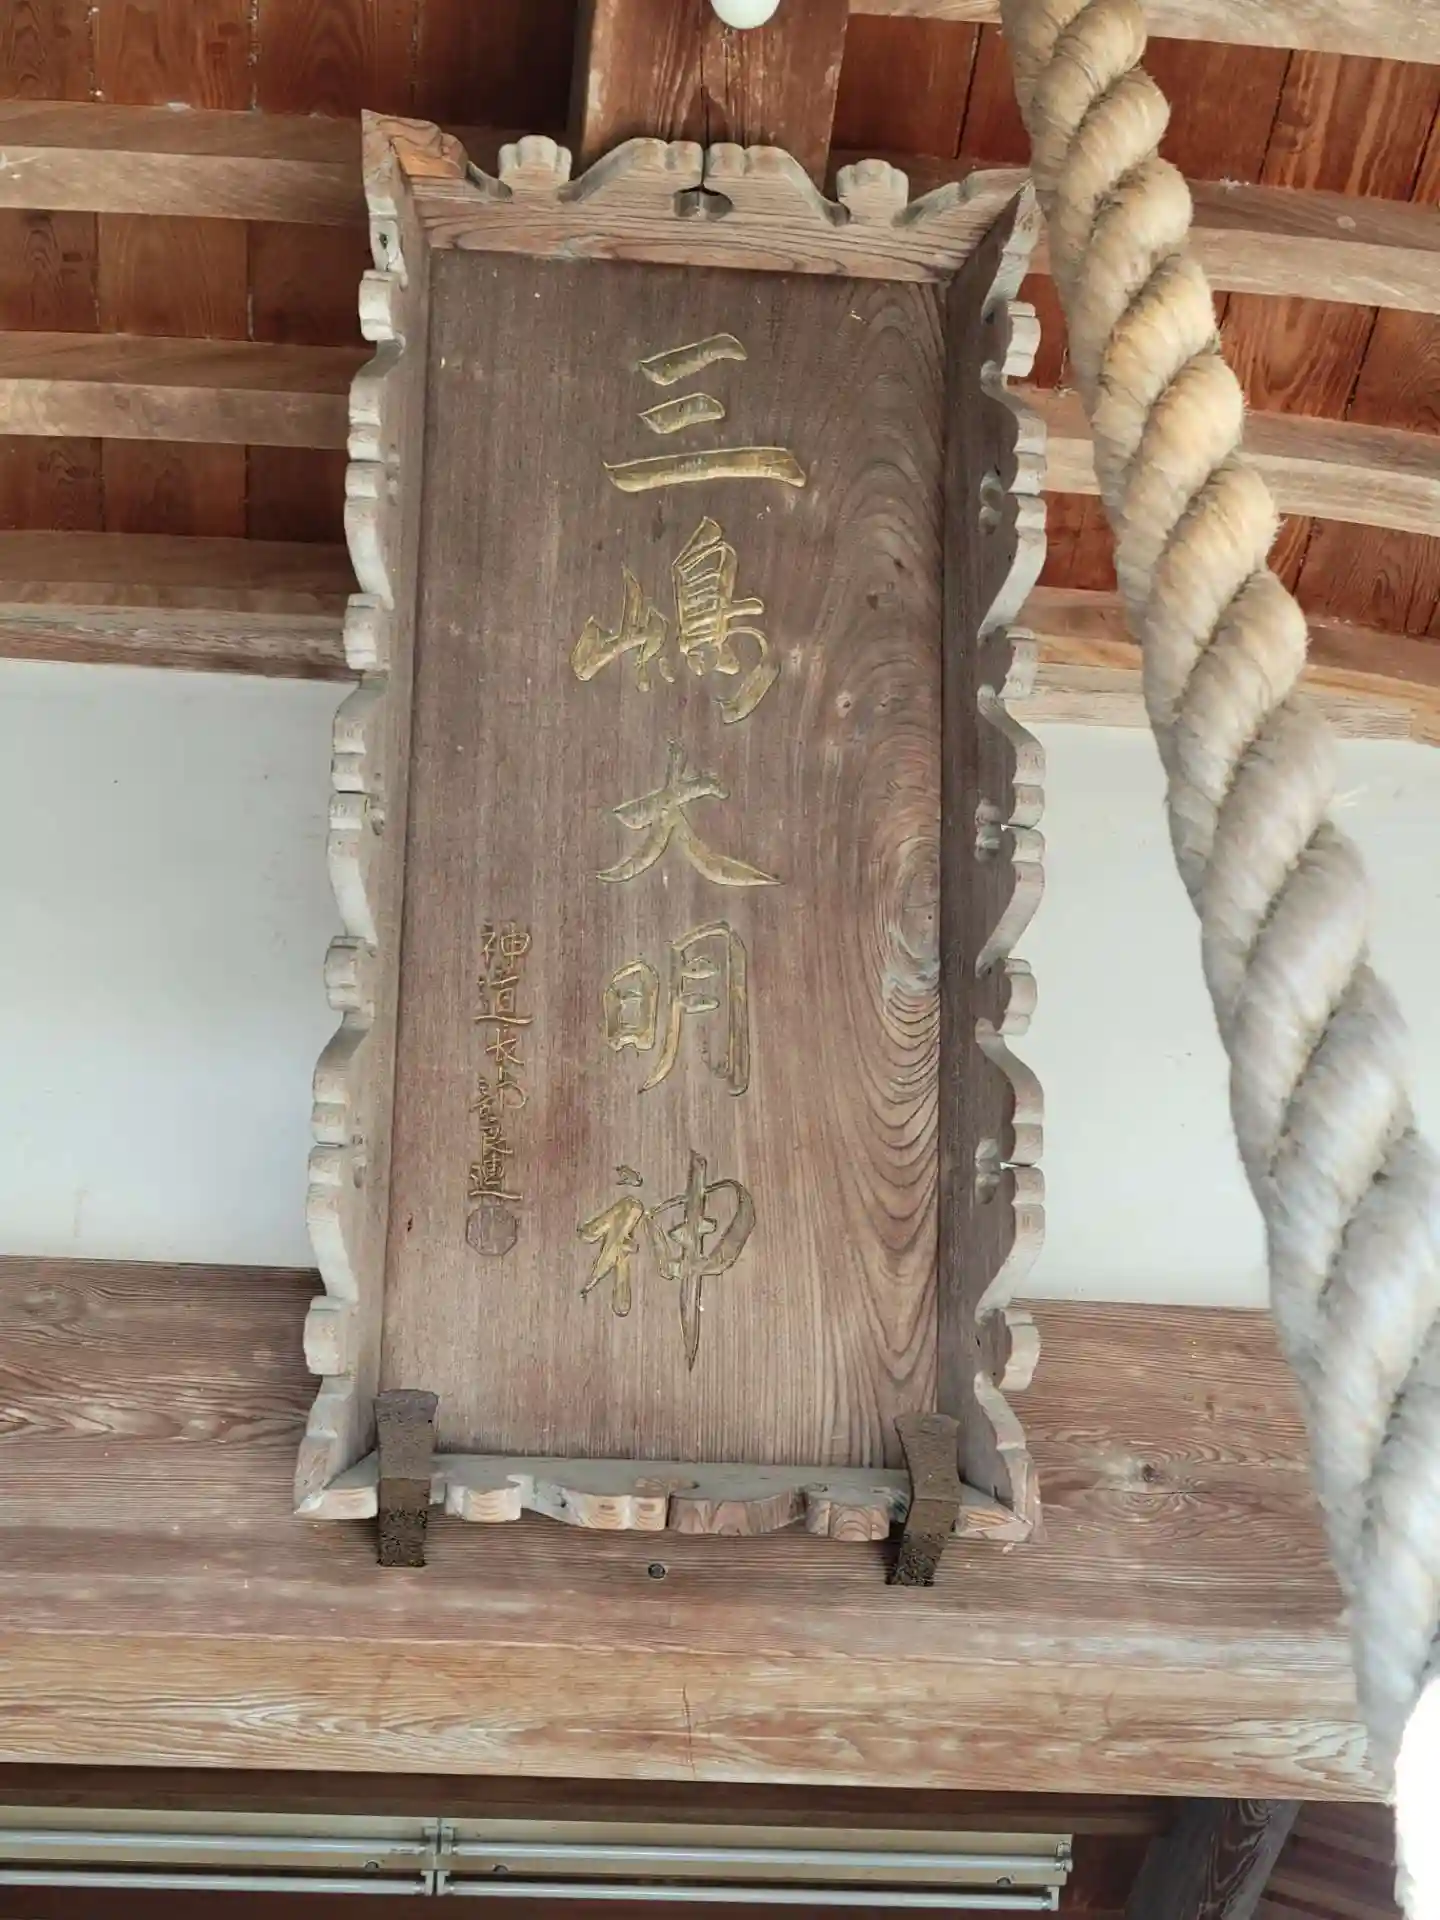 三嶋大明神
神道